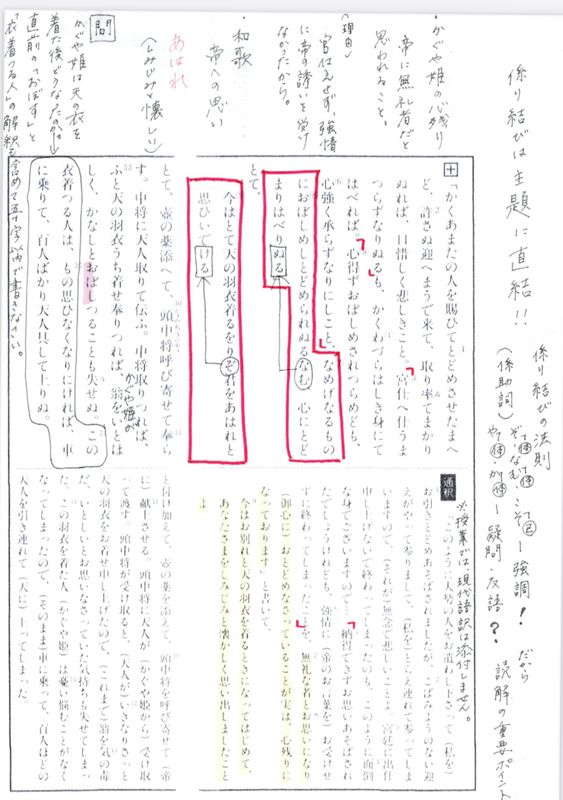 係り結びは主題に直結!!
係り結びの法則
(係助詞)
ぞ・なむ・こそ ー 強調!
や・か ー 疑問 反語?
だから
読解の重要ポイント
・かぐや姫の心残り
帝に無礼者だと
思われること。
(理由)
宮仕えせず、強情
に帝の誘いを受け
なかったから。
・和歌
帝への思い
あはれ
(しみじみと懐しい)
問
かぐや姫は天の衣を
着た後どうなったのか。
直前の「おぼす」と
「衣着つる人」の解釈を
含めて五十字以内で書きなさい。
十
「かくあまたの人を賜ひてとどめさせたまへ
ど、許さぬ迎へまうで来て、取り率てまかり
ぬれば、口惜しく悲しきこと。宮仕へ仕うま
つらずなりぬるも、かくわづらはしき身にて
はべれば、心得ずおぼしめされつらめども、
心強く承らずなりにしこと、なめげなるもの
におぼしめしとどめられぬるなむ、心にとど
まりはべりぬる
とて、
今はとて天の羽衣着るをりぞ君をあはれと
思ひいでける
とて、壺の薬添へて、頭中将呼び寄せて奉ら
す。中将に天人取りて伝ふ。中将取りつれば、
ふと天の羽衣うち着せ奉りつれば、翁をいとほ
かぐや姫が
しく、かなしとおぼしつることも失せぬ。この
衣着つる人は、もの思ひなくなりにければ、車
に乗りて、百人ばかり天人具して上りぬ。
通釈
※授業では、現代語訳は添付しません。
「このように大勢の人をお遣わし下さって(私を)
お引きとどめあそばされましたが、こばみようのない迎
えがやって参りまして、(私を)とらえ連れて参ってしま
いますので、(それが)無念で悲しいことよ。宮廷に出仕
申し上げないで終わってしまったのも、このように面倒
な身でございますので…納得できずお思いあそばされ
たでしょうけれども、強情に(帝のお言葉を)お受けせ
ず終わってしまったことを、無礼な者とお思いになり
(御心に)おとどめなさっていることが実は、心残りに
なっております」と書いて、
今はお別れと天の羽衣を着るときになってはじめて、
あなたさまをしみじみと懐かしく思い出しましたこと
よ
と付け加えて、壺の薬を添えて、頭中将を呼び寄せて(帝
に)献上させる。頭中将に天人が(かぐや姫から)受け取
って渡す。頭中将が受け取ると、(天人が)いきなりさっと
天の羽衣をお着せ申し上げたので、(これまで)翁を気の毒
だ、いとしいとお思いなさっていた気持ちも失せてしまっ
た。この羽衣を着た人(かぐや姫)は憂い悩むことがなく
なってしまったので、(そのまま)車に乗って、百人ほどの
天人を引き連れて(天に)上ってしまった。